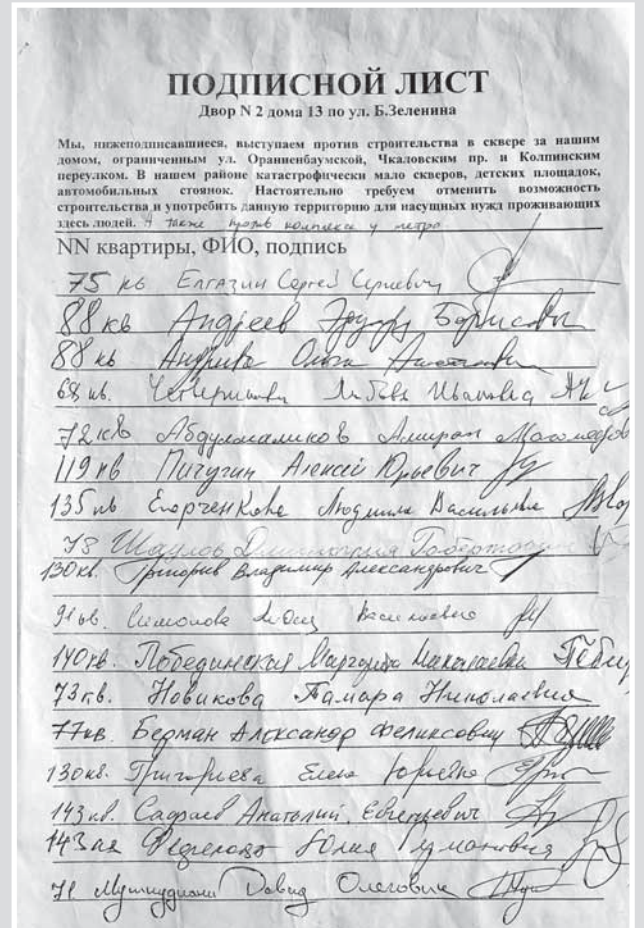 ПОДПИСНОЙ ЛИСТ
Двор N 2 дома 13 по ул. Б.Зеленина
Мы, нижеподписавшиеся, выступаем против строительства в сквере за нашим
домом, ограниченным ул. Ораниенбаумской, Чкаловским пр. и Колпинским
переулком. В нашем районе катастрофически мало скверов, детских площадок,
автомобильных стоянок. Настоятельно требуем отменить возможность
строительства и употребить данную территорию для насущных нужд проживающих
здесь людей. А также против комплекса у метро
NN квартиры, ФИО, подпись
75 кв Елгазин Сергей Сергеевич
88 кв Андреев Эдуард Борисович
88 кв Ольга
68 кв. Иванова
72 кв Абдулмаликов Амиран
119 кв Пичугин Алексей Юрьевич
135 кв Егорченкова Людмила Васильевна
78 Шаулов
130 кв. Владимир Александрович
91 кв. Симонова Васильевна
140 кв. Побединская Маргарита Николаевна
73 кв. Новикова Тамара Николаевна
77 кв. Берман Александр Феликсович
130 кв. Григорьева Елена Юрьевна
143 кв. Анатолий Евгеньевич
143 кв Юлия
71 Давид Олегович